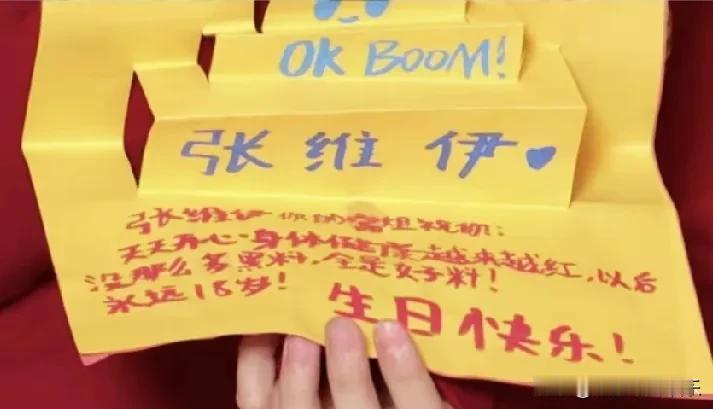 OK BOOM!
张维伊
张维伊你的富姐祝你:
天天开心,身体健康,越来越红,以后
没那么多黑料,全是好料!
永远18岁!
生日快乐!